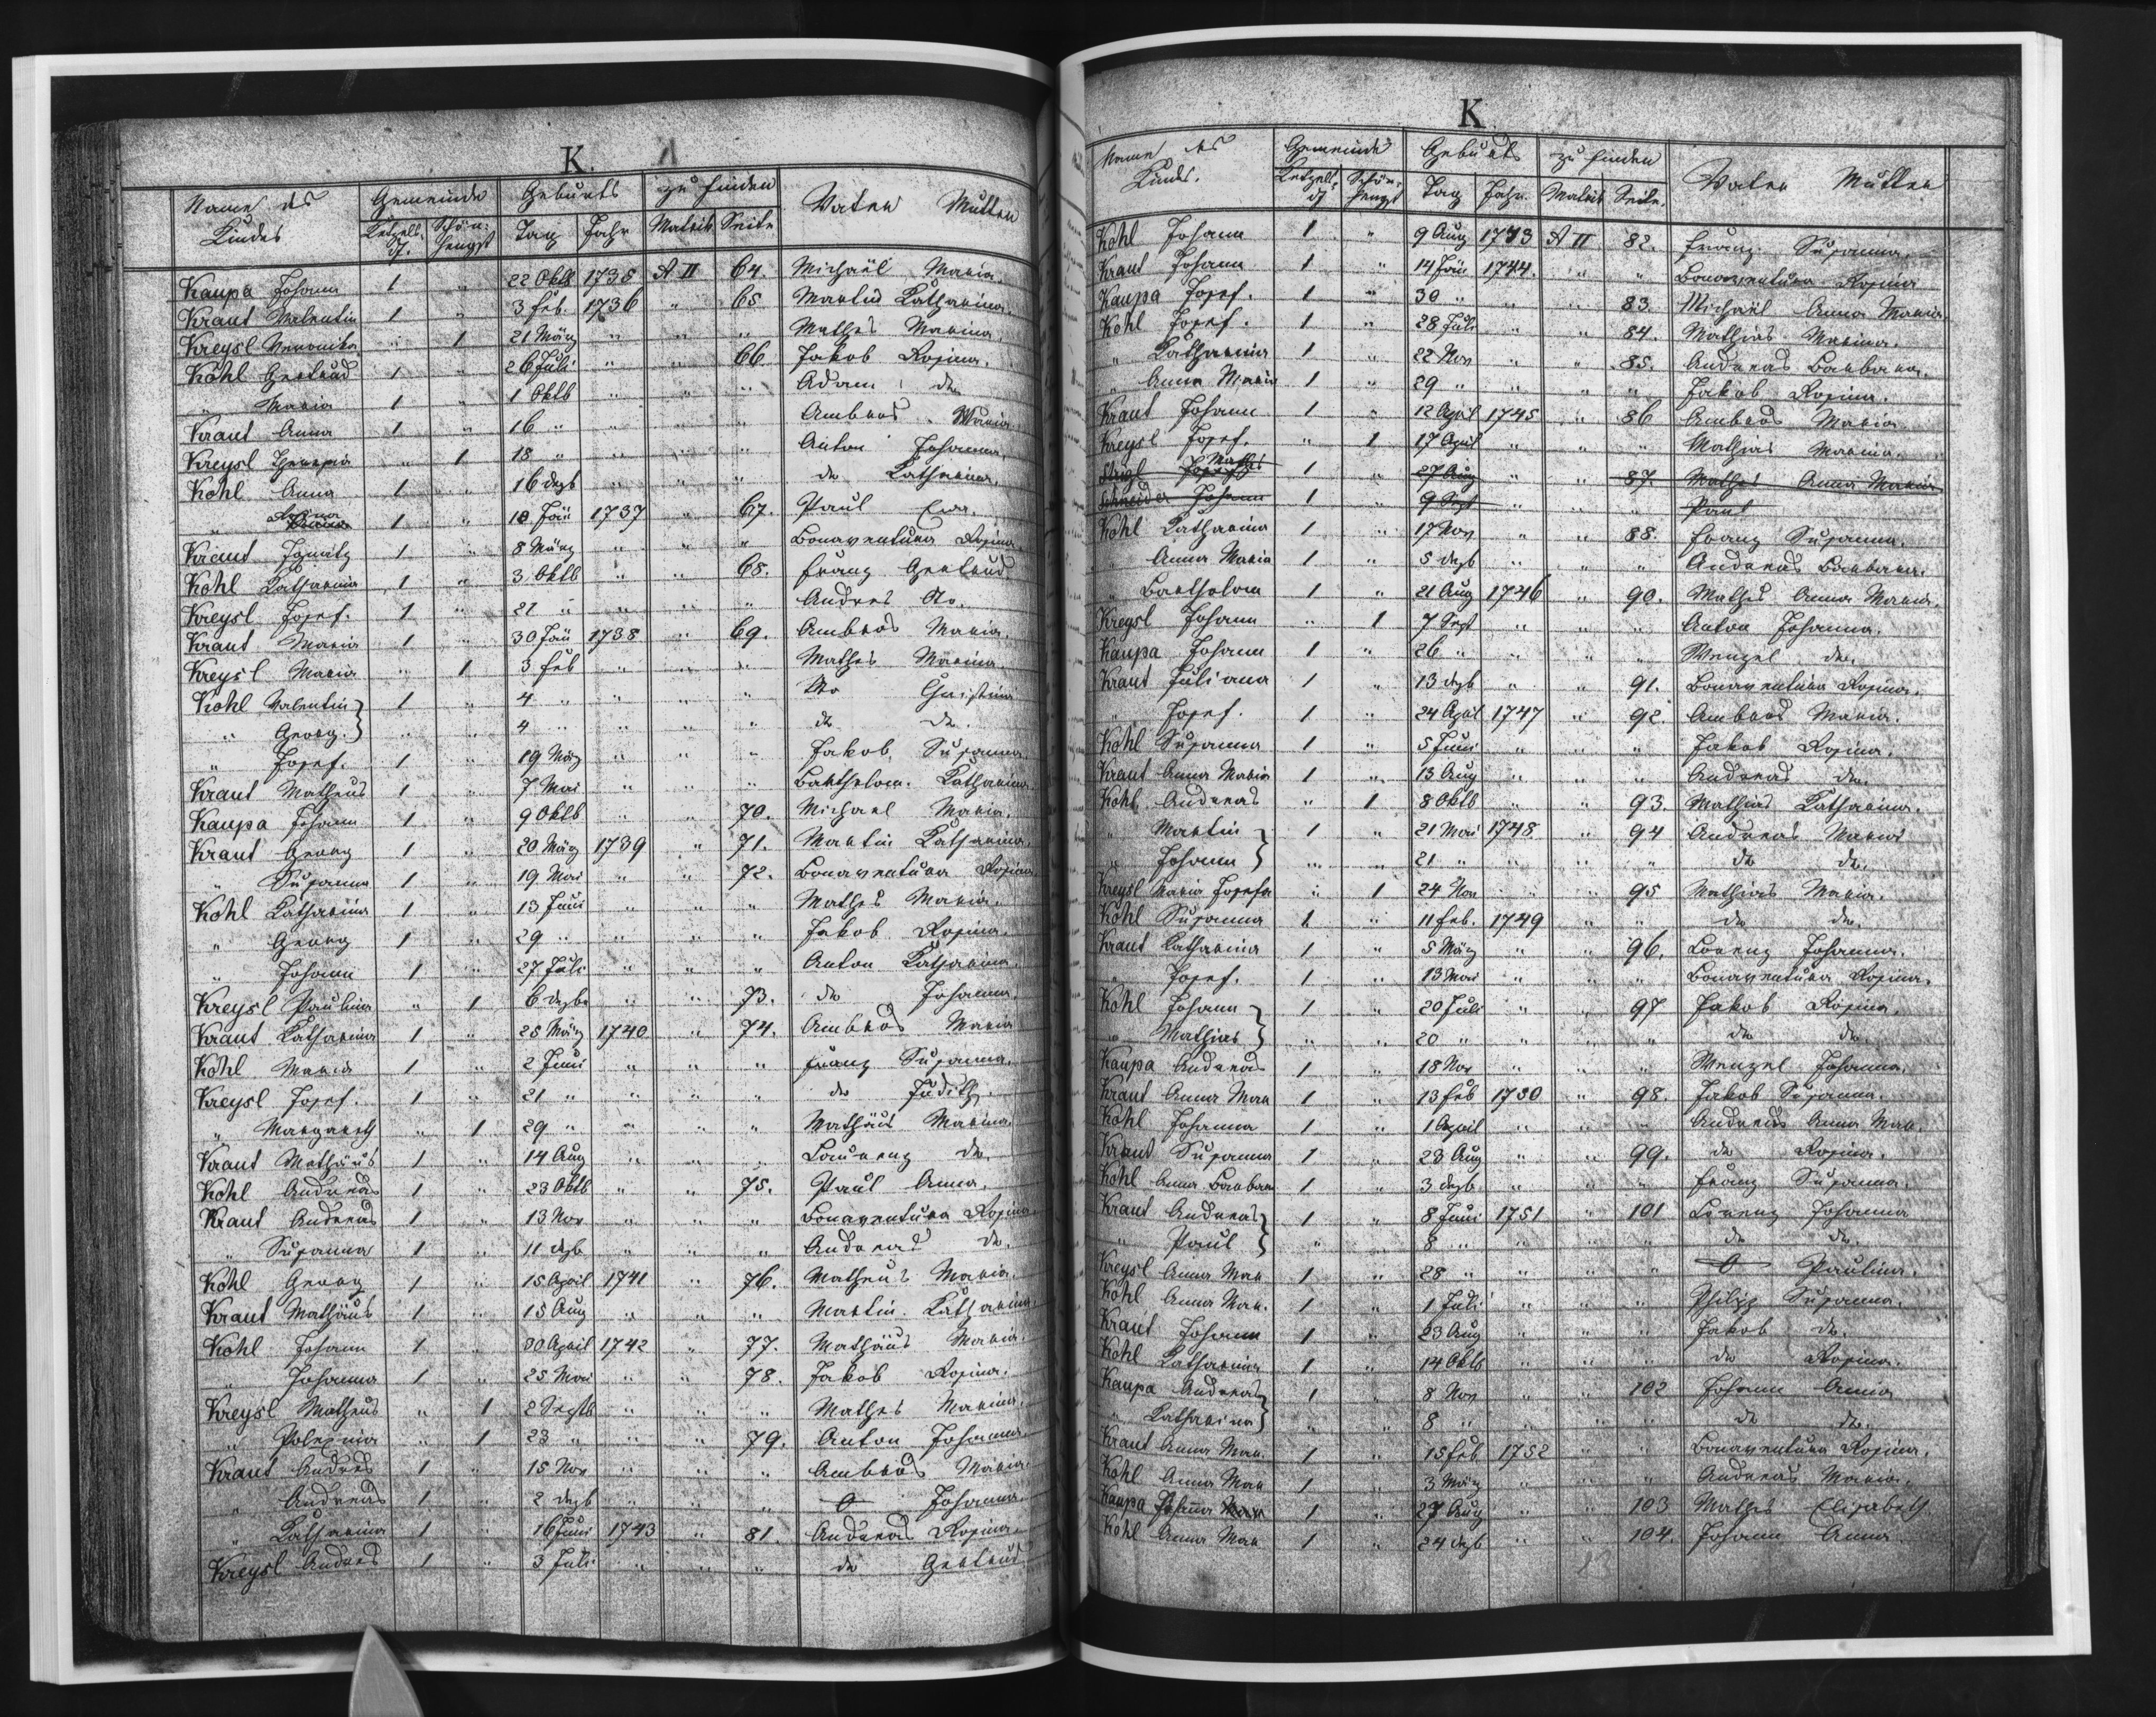 K.
Name des Kindes Gemeinde Geburts zu finden Vater Mutter
Ketzelsdf. Schönhengst Tag Jahr Matrik Seite
Kaupa Johann 1 " 22 Oktb 1735 A II 64. Michaël Maria.
Kraut Valentin 1 " 3 Feb. 1736 " 65 Martin Katharina.
Kreysl Veronika " 1 21 März " " " Mathes Marina.
Kohl Gertrud 1 " 26 Juli " " 66. Jakob Rosina.
" Maria 1 " 1 Oktb " " " Adam do
Kraut Anna 1 " 16 " " " " Ambros Maria
Kreysl Theresia " 1 18 " " " " Anton Johanna
Kohl Anna 1 " 16 dezb " " " do Katharina.
" Rosina 1 " 10 Jän 1737 " 67. Paul Eva.
Kraut Ignatz 1 " 8 März " " " Bonaventura Rosina
Kohl Katharina 1 " 3 Oktb " " 68. Franz Gertrud
Kreysl Josef. 1 " 21 " " " " Andres do.
Kraut Maria 1 " 30 Jän 1738 " 69. Ambros Maria.
Kreysl Maria " 1 3 Feb " " " Mathes Marina.
Kohl Valentin } 1 " 4 " " " " do Christina
" Georg. } " " 4 " " " " do do.
" Josef. 1 " 19 März " " " Jakob Susanna.
Kraut Matheus 1 " 7 Mai " " " Bartholom. Katharina
Kaupa Johann 1 " 9 Oktb " " 70. Michael Maria.
Kraut Georg 1 " 20 März 1739 " 71. Martin Katharina.
" Susanna 1 " 19 Mai " " 72. Bonaventura Rosina.
Kohl Katharina 1 " 13 Juni " " " Mathes Maria.
" Georg 1 " 29 " " " " Jakob Rosina.
" Johann 1 " 27 Juli " " " Anton Katharina.
Kreysl Paulina " 1 6 dezbr " " 73. do Johanna.
Kraut Katharina 1 " 25 März 1740 " 74. Ambros Maria
Kohl Maria 1 " 2 Juni " " " Franz Susanna.
Kreysl Josef. 1 " 21 " " " " do Judith.
" Margareth " 1 29 " " " " Mathäus Marina.
Kraut Mathäus 1 " 14 Aug " " " Laurenz do
Kohl Andreas 1 " 23 Oktb " " 75. Paul Anna.
Kraut Andreas 1 " 13 Nov " " " Bonaventura Rosina.
" Susanna 1 " 11 dezb " " " Andreas do.
Kohl Georg 1 " 15 April 1741 " 76. Matheus Maria.
Kraut Mathäus 1 " 15 Aug " " " Martin Katharina.
Kohl Johann 1 " 30 April 1742 " 77. Mathäus Maria.
" Johanna 1 " 25 Mai " " 78. Jakob Rosina.
Kreysl Matheus " 1 2 Septb " " " Mathes Marina.
" Polexina " 1 23 " " " 79. Anton Johanna.
Kraut Andres 1 " 15 Nov " " " Ambros Maria.
" Andreas 1 " 2 dezb " " " O Johanna.
" Katharina 1 " 16 Juni 1743 " 81. Andreas Rosina.
Kreysl Andres 1 " 3 Juli " " " do Gertrud
K
Name des Kindes. Gemeinde Geburts zu finden Vater Mutter
Ketzelsdf Schönhengst Tag Jahr. Matrik Seite.
Kohl Johann 1 " 9 Aug 1743 A II 82. Franz Susanna.
Kraut Johann 1 " 14 Jän 1744. " " Bonaventura Rosina
Kaupa Josef. 1 " 30 " " " 83. Michaël Anna Maria.
Kohl Josef. 1 " 28 Juli " " 84. Mathias Marina.
" Katharina 1 " 22 Nov " " 85. Andreas Barbara.
" Anna Maria 1 " 29 " " " " Jakob Rosina.
Kraut Johann 1 " 12 April 1745 " 86 Ambros Maria
Kreysl Josef. " 1 17 April " " " Mathias Marina.
Mathes 1 " 27 Aug " " 87. Mathes Anna Maria
Schneider Johann 1 " 9 Sept " " " Paul
Kohl Katharina 1 " 17 Nov " " 88. Franz Susanna.
" Anna Maria 1 " 5 dezb " " " Andreas Barbara.
" Bartholom 1 " 21 Aug 1746 " 90. Mathes Anna Maria.
Kreysl Johann " 1 7 Sept " " " Anton Johanna.
Kaupa Johann 1 " 26 " " " " Wenzel do.
Kraut Juliana 1 " 13 dezb " " 91. Bonaventura Rosina.
" Josef. 1 " 24 April 1747 " 92. Ambros Maria.
Kohl Susanna 1 " 5 Juni " " " Jakob Rosina.
Kraut Anna Maria 1 " 13 Aug " " " Andreas do.
Kohl Andreas " 1 8 Oktb " " 93. Mathias Katharina.
" Martin } 1 " 21 Mai 1748 " 94 Andreas Maria
" Johann } " " 21 " " " " do do.
Kreysl Maria Josefa " 1 24 Nov " " 95 Mathias Maria.
Kohl Susanna 1 " 11 Feb. 1749 " " do do.
Kraut Katharina 1 " 5 März " " 96. Lorenz Johanna.
" Josef. 1 " 13 Mai " " " Bonaventura Rosina.
Kohl Johann } 1 " 20 Juli " " 97 Jakob Rosina.
" Mathias } " " 20 " " " " do do.
Kaupa Andreas 1 " 18 Nov " " " Wenzel Johanna.
Kraut Anna Mar 1 " 13 Feb 1750 " 98. Jakob Susanna.
Kohl Johanna 1 " 1 April " " " Andreas Anna Mar.
Kraut Susanna 1 " 23 Aug " " 99. do Rosina.
Kohl Anna Barbara 1 " 3 dezb " " " Franz Susanna.
Kraut Andreas } 1 " 8 Juni 1751 " 101 Lorenz Johanna
" Paul } " " 8 " " " " do do.
Kreysl Anna Mar 1 " 28 " " " " O Paulina.
Kohl Anna Mar. 1 " 1 Juli " " " Philip Susanna.
Kraut Johann 1 " 23 Aug " " " Jakob do.
Kohl Katharina 1 " 14 Oktb " " " do Rosina.
Kaupa Andreas } 1 " 8 Nov " " 102 Johann Anna
" Katharina } " " 8 " " " " do do.
Kraut Anna Mar. 1 " 15 Feb 1752 " " Bonaventura Rosina.
Kohl Anna Mar 1 " 3 März " " " Andreas Maria.
Kaupa Johanna 1 " 27 Aug " " 103 Mathes Elisabeth
Kohl Anna Mar 1 " 24 dezb " " 104. Johann Anna